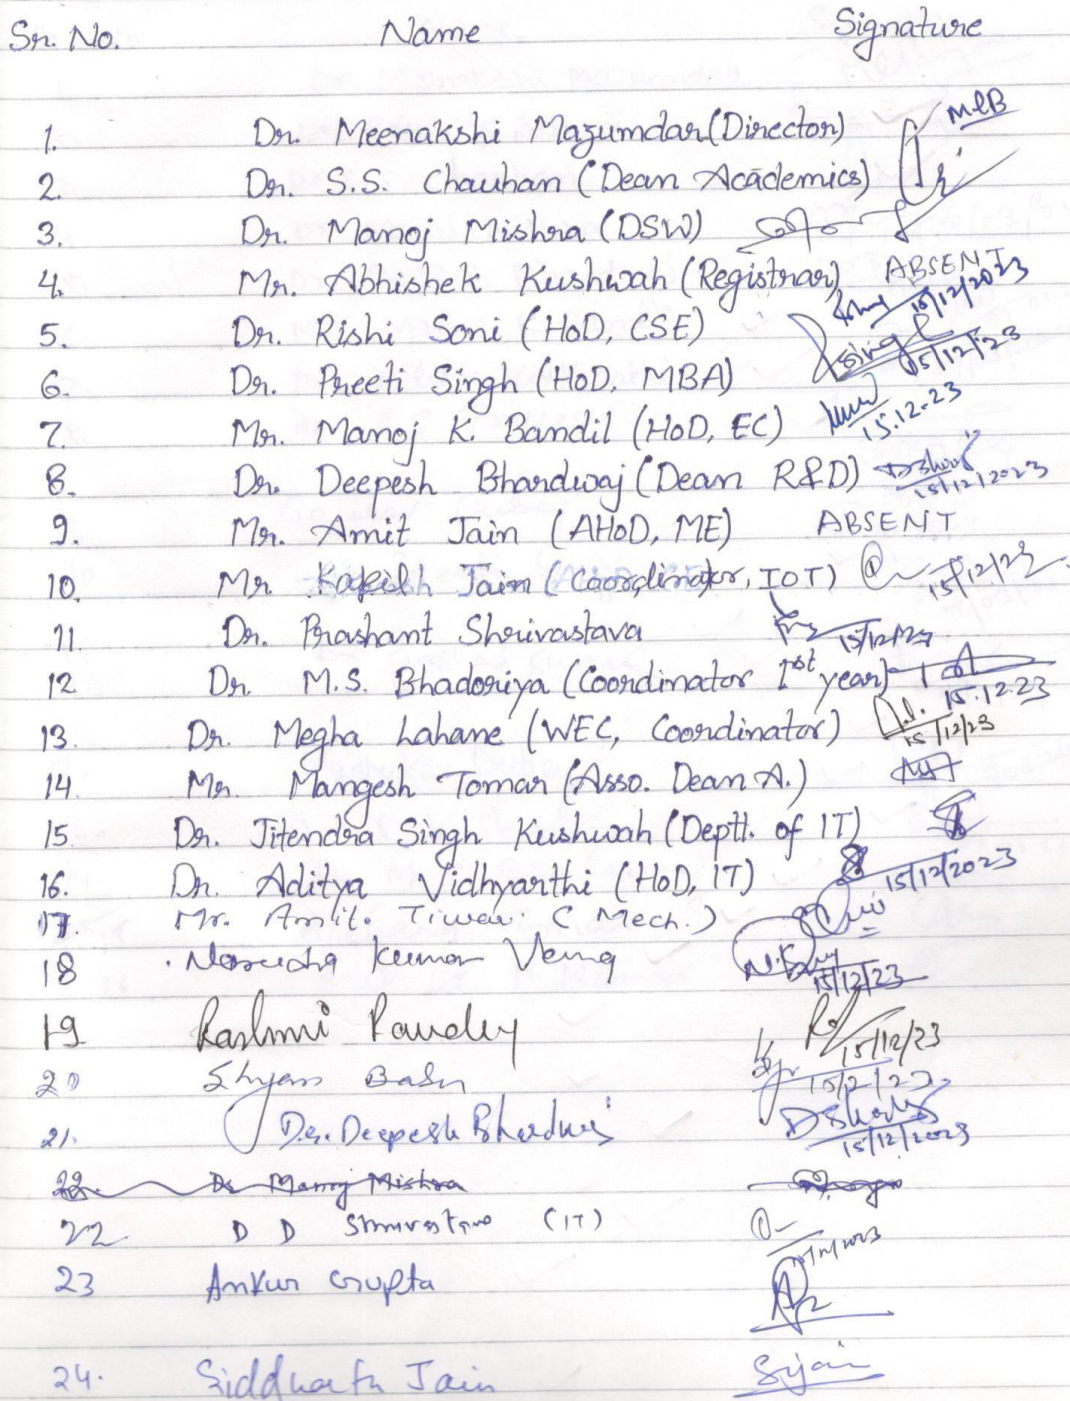 Sr. No. Name Signature
1. Dr. Meenakshi Mazumdar (Director) MLB
2. Dr. S.S. Chauhan (Dean Academics)
3. Dr. Manoj Mishra (DSW)
4. Mr. Abhishek Kushwah (Registrar) ABSENT
5. Dr. Rishi Soni (HoD, CSE) 15/12/2023
6. Dr. Preeti Singh (HoD, MBA) 15/12/23
7. Mr. Manoj K. Bandil (HoD, EC) 15.12.23
8. Dr. Deepesh Bhardwaj (Dean R&D) 15/12/2023
9. Mr. Amit Jain (AHoD, ME) ABSENT
10. Mr. Jain (Coordinator, IOT) 15/12/23
11. Dr. Prashant Shrivastava 15/12/23
12 Dr. M.S. Bhadoriya (Coordinator 1st year) 15.12.23
13. Dr. Megha Lahane (WEC, Coordinator) 15/12/23
14. Mr. Mangesh Tomar (Asso. Dean A.)
15. Dr. Jitendra Singh Kushwah (Deptt. of IT)
16. Dr. Aditya Vidhyarthi (HoD, IT) 15/12/2023
17. Mr. Amit. Tiwari (Mech.)
18 Kumar 15/12/23
19 Rashmi Pandey 15/12/23
20 Shyam
21. Dr. Deepesh Bhardwaj 15/12/2023
22 Dr Manoj Mishra
22. D D Shrivastava (IT)
23 Ankur Gupta
24. Siddharth Jain SJain